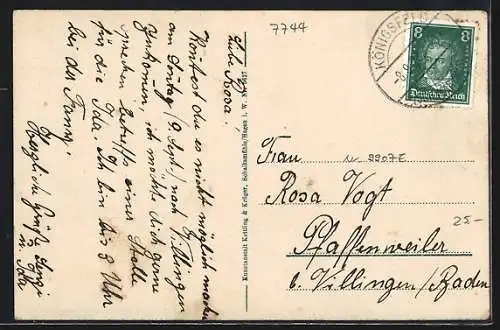 7744
Liebe Rosa!
Könntest du es nicht möglich machen
am Sonntag (9. Sept.) nach Villingen
zu kommen, ich möchte dich gerne
sprechen betreffs einer Stelle
für die Ida. Ich bin bis 2 Uhr
bei der Fanny.
Herzliche Grüße
u. Ida
Kunstanstalt Kettling & Krüger, Schalksmühle/Hagen i. W.
KÖNIGSFELD
8 8
Deutsches Reich
Frau
9907E
Rosa Vogt
Pfaffenweiler
b. Villingen/Baden
25-